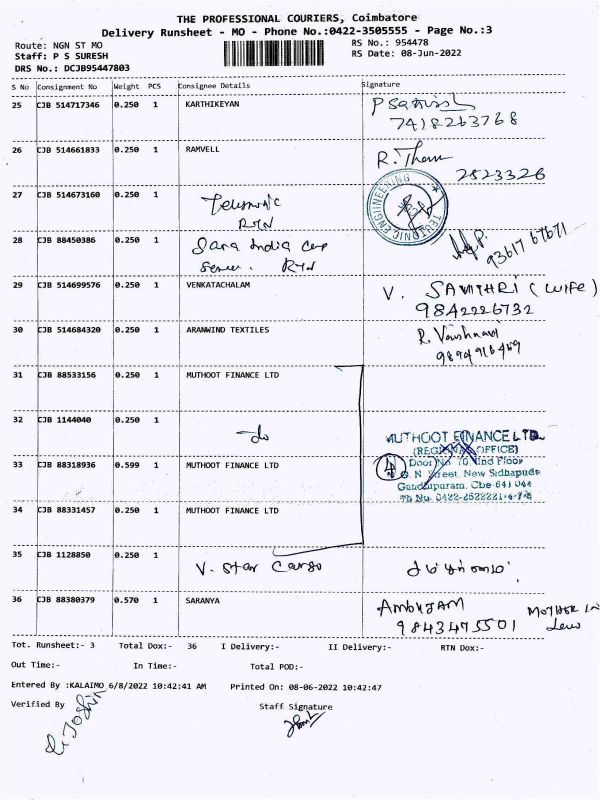 THE PROFESSIONAL COURIERS, Coimbatore
Delivery Runsheet - MO - Phone No.:0422-3505555 - Page No.:3
Route: NGN ST MO
RS No.: 954478
Staff: P S SURESH
RS Date: 08-Jun-2022
DRS No.: DCJB95447803
S No Consignment No Weight PCS Consignee Details Signature
25 CJB 514717346 0.250 1 KARTHIKEYAN
7418263768
26 CJB 514661833 0.250 1 RAMVELL R. Tham
2523326
27 CJB 514673160 0.250 1
RTN
TEUTONIC ENGINEERING
28 CJB 88450386 0.250 1 Sara India Cap
RTN
93617 67671
29 CJB 514699576 0.250 1 VENKATACHALAM V. SAVITHRI (WIFE)
9842226732
30 CJB 514684320 0.250 1 ARANWIND TEXTILES R. Vaishnavi
9894916469
31 CJB 88533156 0.250 1 MUTHOOT FINANCE LTD
32 CJB 1144040 0.250 1 do
MUTHOOT FINANCE LTD.
(REGIONAL OFFICE)
33 CJB 88318936 0.599 1 MUTHOOT FINANCE LTD
4
Door No 70, IInd Floor
G. N. Street, New Sidhapudu
Gandhipuram, Cbe-641 044
Ph No. 0422-2522221
34 CJB 88331457 0.250 1 MUTHOOT FINANCE LTD
35 CJB 1128850 0.250 1 V. Star Cargo
36 CJB 88380379 0.570 1 SARANYA AMBUJAM MOTHER IN
9843475501 Law
Tot. Runsheet:- 3 Total Dox:- 36 I Delivery:- II Delivery:- RTN Dox:-
Out Time:- In Time:- Total POD:-
Entered By :KALAIMO 6/8/2022 10:42:41 AM Printed On: 08-06-2022 10:42:47
Verified By Staff Signature